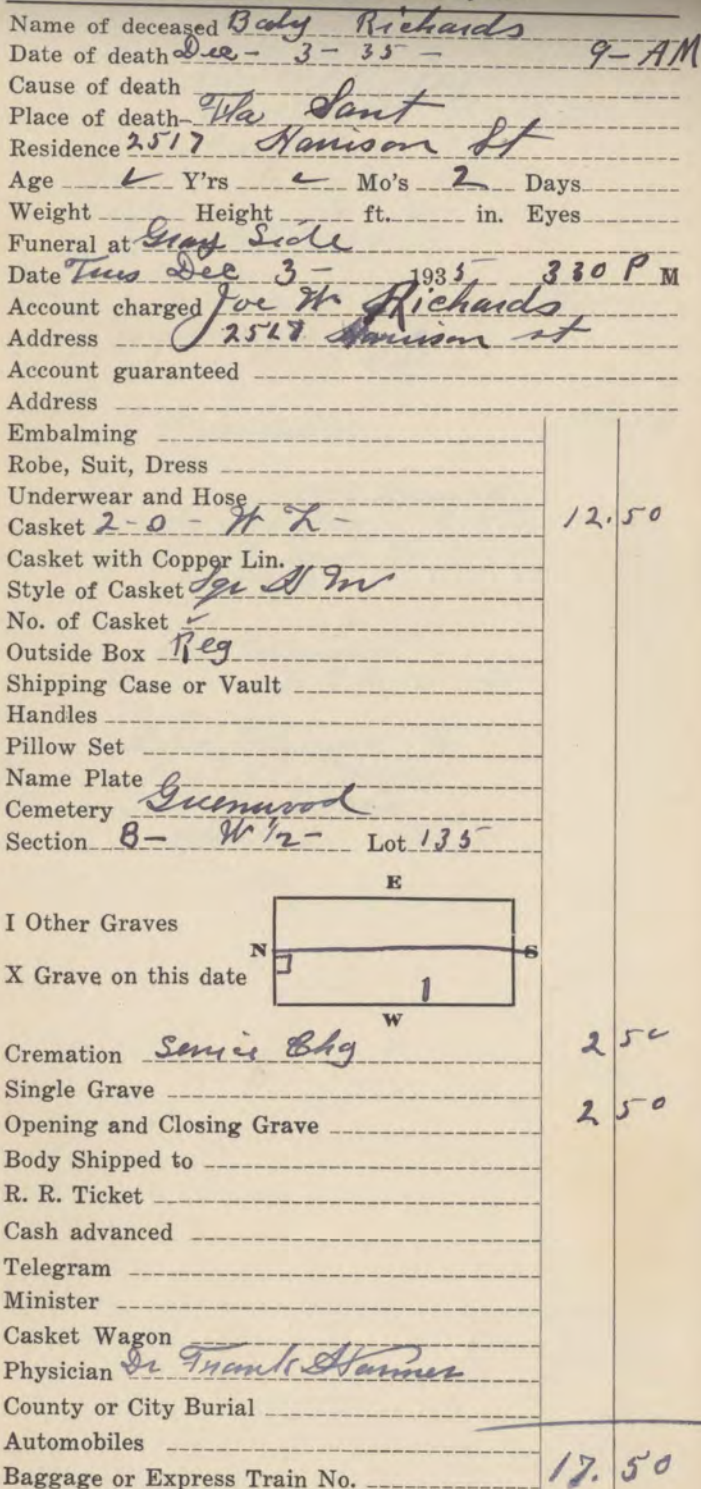 Name of deceased Baby Richards
Date of death Dec - 3 - 35 - 9 - AM
Cause of death
Place of death Fla Sant
Residence 2517 Harrison St
Age ✓ Y'rs ✓ Mo's 2 Days
Weight Height ft. in. Eyes
Funeral at Grave Side
Date Tues Dec 3 - 1935 330 P M
Account charged Joe W Richards
Address 2517 Harrison st
Account guaranteed
Address
Embalming
Robe, Suit, Dress
Underwear and Hose
Casket 2-0 - W L - 12.50
Casket with Copper Lin.
Style of Casket
No. of Casket ✓
Outside Box Reg
Shipping Case or Vault
Handles
Pillow Set
Name Plate
Cemetery Greenwood
Section 8 - W 1/2 - Lot 135
E
I Other Graves
N S
X Grave on this date
W
Cremation Service Chg 2 50
Single Grave
Opening and Closing Grave 2 50
Body Shipped to
R. R. Ticket
Cash advanced
Telegram
Minister
Casket Wagon
Physician Dr Frank
County or City Burial
Automobiles
Baggage or Express Train No. 17.50